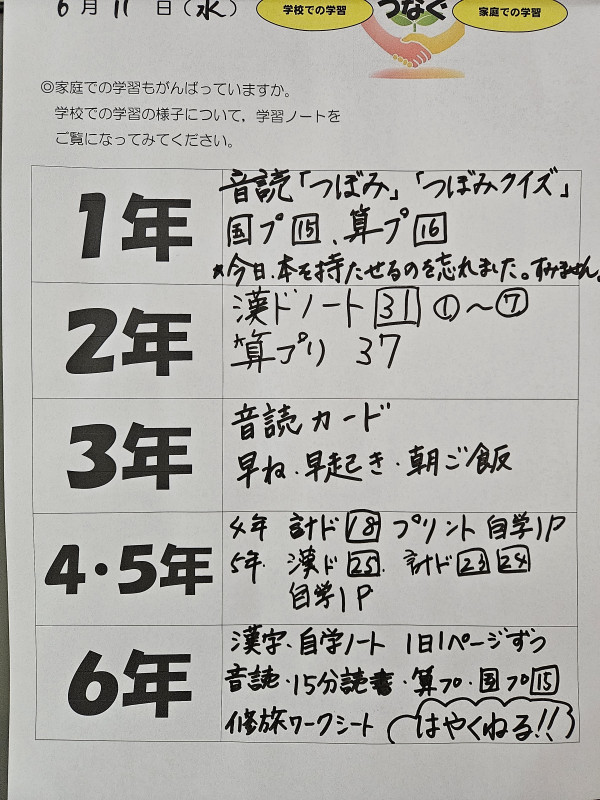 6月11日(水)
学校での学習 つなぐ 家庭での学習
◎家庭での学習もがんばっていますか。
学校での学習の様子について，学習ノートを
ご覧になってみてください。
1年
音読「つぼみ」「つぼみクイズ」
国プ 15、算プ 16
*今日、本を持たせるのを忘れました。すみません。
2年
漢ドノート 31 ①〜⑦
*算プリ 37
3年
音読カード
早ね・早起き・朝ご飯
4・5年
4年 計ド 18 プリント 自学1P
5年 漢ド 25. 計ド 23 24
自学1P
6年
漢字・自学ノート 1日1ページずつ
音読・15分読書・算プ・国プ 15
修旅ワークシート (はやくねる!!)